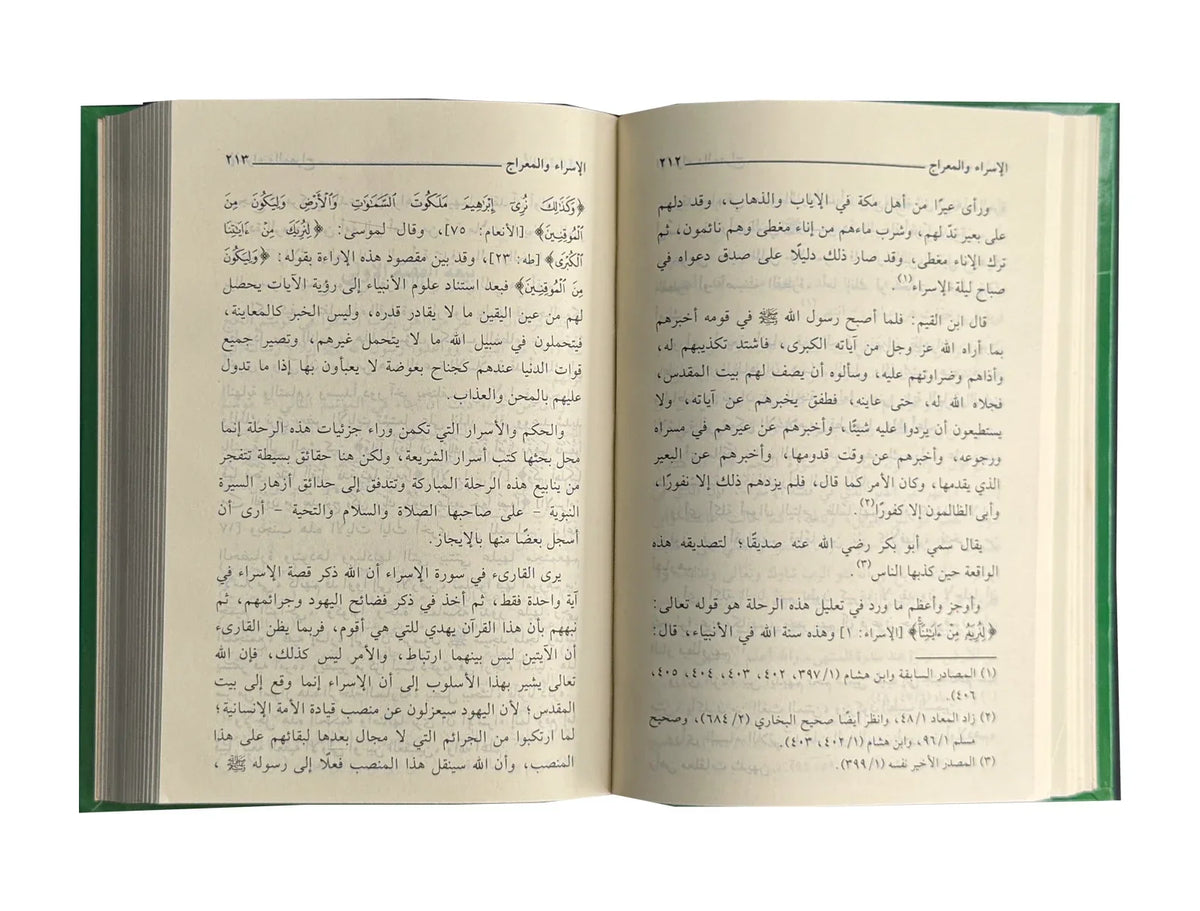 الإسراء والمعراج ٢١٢
ورأى عيرًا من أهل مكة في الإياب والذهاب، وقد دلهم
على بعير ندّ لهم، وشرب ماءهم من إناء مغطى وهم نائمون، ثم
ترك الإناء مغطى، وقد صار ذلك دليلًا على صدق دعواه في
صباح ليلة الإسراء(١).
قال ابن القيم: فلما أصبح رسول الله ﷺ في قومه أخبرهم
بما أراه الله عز وجل من آياته الكبرى، فاشتد تكذيبهم له،
وأذاهم وضراوتهم عليه، وسألوه أن يصف لهم بيت المقدس،
فجلاه الله له، حتى عاينه، فطفق يخبرهم عن آياته، ولا
يستطيعون أن يردوا عليه شيئًا، وأخبرهم عن عيرهم في مسراه
ورجوعه، وأخبرهم عن وقت قدومها، وأخبرهم عن البعير
الذي يقدمها، وكان الأمر كما قال، فلم يزدهم ذلك إلا نفورًا،
وأبى الظالمون إلا كفورًا(٢).
يقال سمي أبو بكر رضي الله عنه صديقًا؛ لتصديقه هذه
الواقعة حين كذبها الناس(٣).
وأوجز وأعظم ما ورد في تعليل هذه الرحلة هو قوله تعالى:
﴿لِنُرِيَهُۥ مِنْ ءَايَٰتِنَآ﴾ [الإسراء: ١] وهذه سنة الله في الأنبياء، قال:
(١) المصادر السابقة وابن هشام (٣٩٧/١، ٤٠٢، ٤٠٣، ٤٠٤، ٤٠٥،
٤٠٦.
(٢) زاد المعاد ٤٨/١، وانظر أيضًا صحيح البخاري (٦٨٤/٢)، وصحيح
مسلم ٩٦/١، وابن هشام (٤٠٢/١، ٤٠٣).
(٣) المصدر الأخير نفسه (٣٩٩/١).
الإسراء والمعراج ٢١٣
﴿وَكَذَٰلِكَ نُرِىٓ إِبْرَٰهِيمَ مَلَكُوتَ ٱلسَّمَٰوَٰتِ وَٱلْأَرْضِ وَلِيَكُونَ مِنَ
ٱلْمُوقِنِينَ﴾ [الأنعام: ٧٥]، وقال لموسى: ﴿لِنُرِيَكَ مِنْ ءَايَٰتِنَا
ٱلْكُبْرَى﴾ [طه: ٢٣]، وقد بين مقصود هذه الإراءة بقوله: ﴿وَلِيَكُونَ
مِنَ ٱلْمُوقِنِينَ﴾ فبعد استناد علوم الأنبياء إلى رؤية الآيات يحصل
لهم من عين اليقين ما لا يقادر قدره، وليس الخبر كالمعاينة،
فيتحملون في سبيل الله ما لا يتحمل غيرهم، وتصير جميع
قوات الدنيا عندهم كجناح بعوضة لا يعبأون بها إذا ما تدول
عليهم بالمحن والعذاب.
والحكم والأسرار التي تكمن وراء جزئيات هذه الرحلة إنما
محل بحثها كتب أسرار الشريعة، ولكن هنا حقائق بسيطة تتفجر
من ينابيع هذه الرحلة المباركة وتتدفق إلى حدائق أزهار السيرة
النبوية - على صاحبها الصلاة والسلام والتحية - أرى أن
أسجل بعضًا منها بالإيجاز.
يرى القارىء في سورة الإسراء أن الله ذكر قصة الإسراء في
آية واحدة فقط، ثم أخذ في ذكر فضائح اليهود وجرائمهم، ثم
نبههم بأن هذا القرآن يهدي للتي هي أقوم، فربما يظن القارىء
أن الآيتين ليس بينهما ارتباط، والأمر ليس كذلك، فإن الله
تعالى يشير بهذا الأسلوب إلى أن الإسراء إنما وقع إلى بيت
المقدس؛ لأن اليهود سيعزلون عن منصب قيادة الأمة الإنسانية؛
لما ارتكبوا من الجرائم التي لا مجال بعدها لبقائهم على هذا
المنصب، وأن الله سينقل هذا المنصب فعلًا إلى رسوله ﷺ،